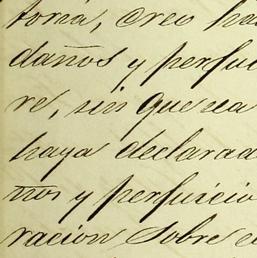 toria, creo ha
daños y perfui
re, sin que sea
haya declarad
ños y perfuicio
racion sobre e